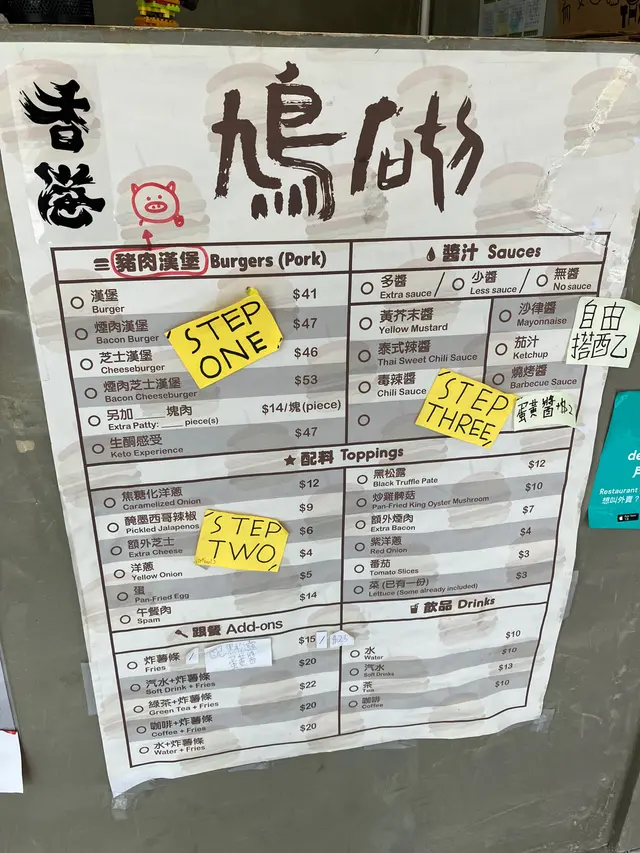 香港
鳩叻
豬肉漢堡 Burgers (Pork)
漢堡 $41
Burger
煙肉漢堡 $47
Bacon Burger
芝士漢堡 $46
Cheeseburger
煙肉芝士漢堡 $53
Bacon Cheeseburger
另加 ____ 塊肉 $14/塊(piece)
Extra Patty: ____ piece(s)
生酮感受 $47
Keto Experience
STEP
ONE
醬汁 Sauces
多醬 / 少醬 / 無醬
Extra sauce / Less sauce / No sauce
黃芥末醬
Yellow Mustard
泰式辣醬
Thai Sweet Chili Sauce
毒辣醬
Chili Sauce
沙律醬
Mayonnaise
茄汁
Ketchup
燒烤醬
Barbecue Sauce
自由
搭配
STEP
THREE
蛋黃醬
配料 Toppings
焦糖化洋蔥 $12
Caramelized Onion
醃墨西哥辣椒 $9
Pickled Jalapenos
額外芝士 $6
Extra Cheese
洋蔥 $4
Yellow Onion
蛋 $5
Pan-Fried Egg
午餐肉 $14
Spam
STEP
TWO
黑松露 $12
Black Truffle Pate
炒雞髀菇 $10
Pan-Fried King Oyster Mushroom
額外煙肉 $7
Extra Bacon
紫洋蔥 $4
Red Onion
番茄 $3
Tomato Slices
菜 (已有一份) $3
Lettuce (Some already included)
跟餐 Add-ons
炸薯條 / $15 /
Fries
汽水+炸薯條 $20
Soft Drink + Fries
綠茶+炸薯條 $22
Green Tea + Fries
咖啡+炸薯條 $20
Coffee + Fries
水+炸薯條 $20
Water + Fries
飲品 Drinks
水 $10
Water
汽水 $10
Soft Drinks
茶 $13
Tea
咖啡 $10
Coffee
Restaurant
想叫外賣?